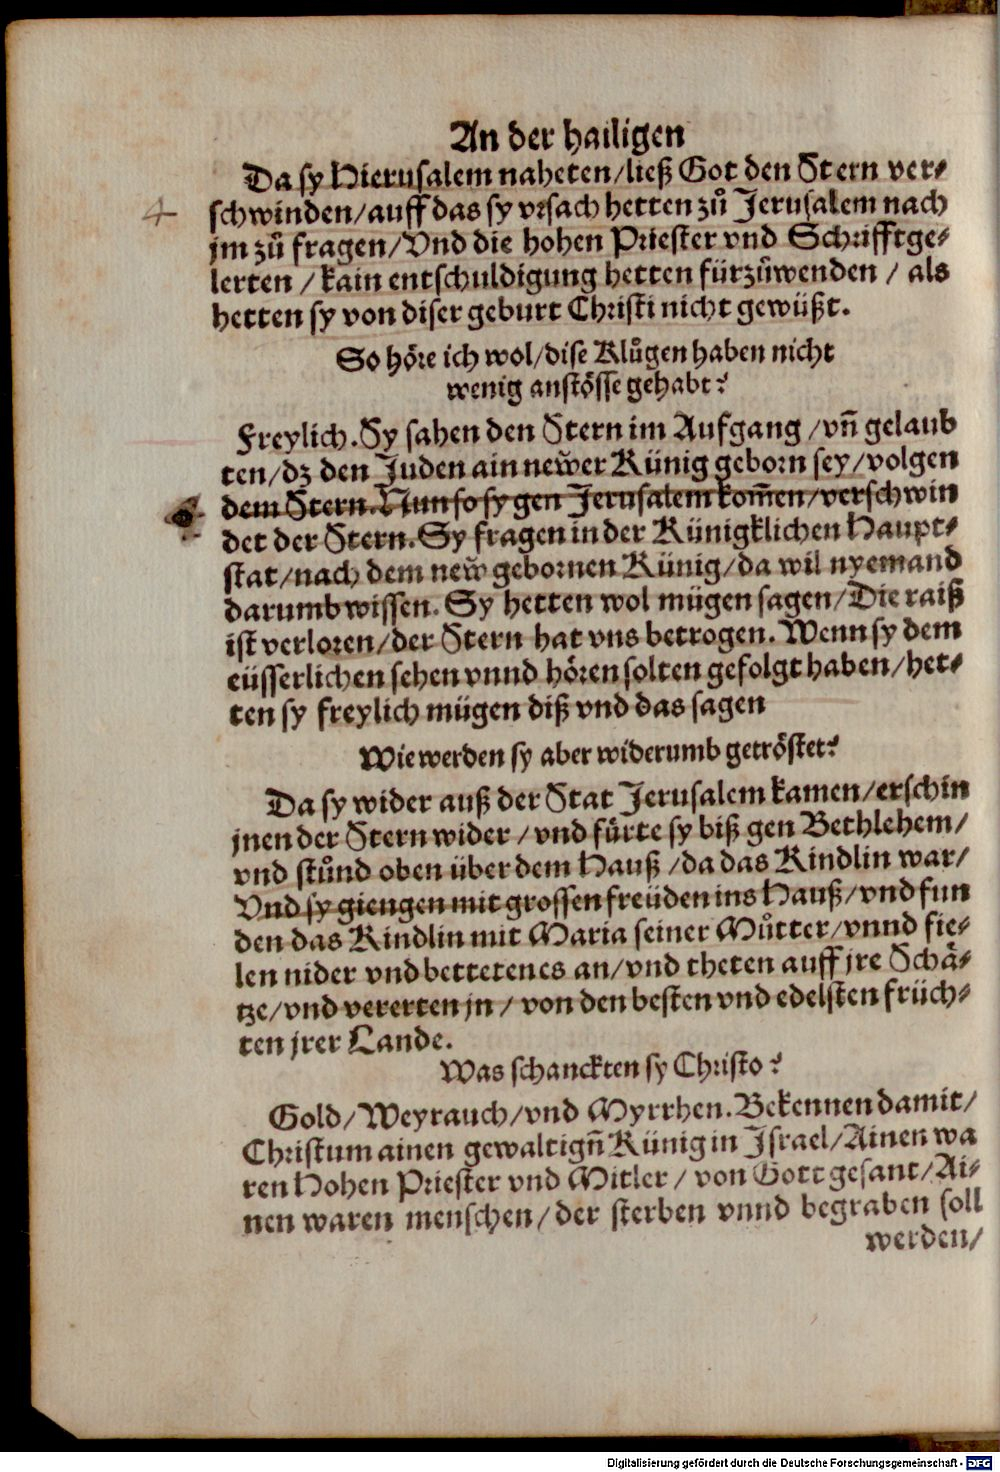 An der hailigen
Da sy Hierusalem naheten/ließ Got den Stern ver⸗
schwinden/auff das sy vrsach hetten zů Jerusalem nach
jm zů fragen/Vnd die hohen Priester vnd Schrifftge⸗
lerten / kain entschuldigung hetten fürzůwenden / als
hetten sy von diser geburt Christi nicht gewüßt.
4
So höre ich wol/dise Klůgen haben nicht
wenig anstösse gehabt?
Freylich. Sy sahen den Stern im Aufgang /vñ gelaub
ten/dz den Juden ain newer Künig geborn sey/volgen
dem Stern. Nun so sy gen Jerusalem kom̃en/verschwin
det der Stern. Sy fragen in der Künigklichen Haupt⸗
stat/nach dem new gebornen Künig/da wil nyemand
darumb wissen. Sy hetten wol mügen sagen/Die raiß
ist verloren/der Stern hat vns betrogen. Wenn sy dem
eüsserlichen sehen vnnd hören solten gefolgt haben/het⸗
ten sy freylich mügen diß vnd das sagen
Wie werden sy aber widerumb getröstet?
Da sy wider auß der Stat Jerusalem kamen/erschin
jnen der Stern wider /vnd fürte sy biß gen Bethlehem/
vnd stůnd oben über dem Hauß /da das Kindlin war/
Vnd sy giengen mit grossen freüden ins Hauß/vnd fun
den das Kindlin mit Maria seiner Můtter/vnnd fie⸗
len nider vnd betteten es an/vnd theten auff jre Schä⸗
tze/vnd vererten jn / von den besten vnd edelsten früch⸗
ten jrer Lande.
Was schanckten sy Christo?
Gold/Weyrauch/vnd Myrrhen. Bekennen damit/
Christum ainen gewaltigñ Künig in Israel/Ainen wa
ren Hohen Priester vnd Mitler / von Gott gesant/Ai⸗
nen waren menschen/der sterben vnnd begraben soll
werden/
Digitalisierung gefördert durch die Deutsche Forschungsgemeinschaft - DFG